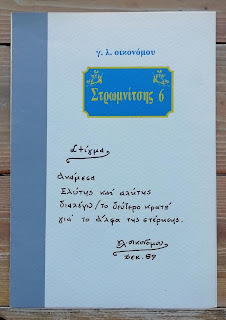 γ. λ. οικονόμου
Στρωμνίτσης 6
Στίγμα
Ανάμεσα
Ελύτης και αλύτης
διαλέγω / το δεύτερο κρατώ
γιά το άλφα της στέρησης.
γλ οικονόμου
Δεκ. 89